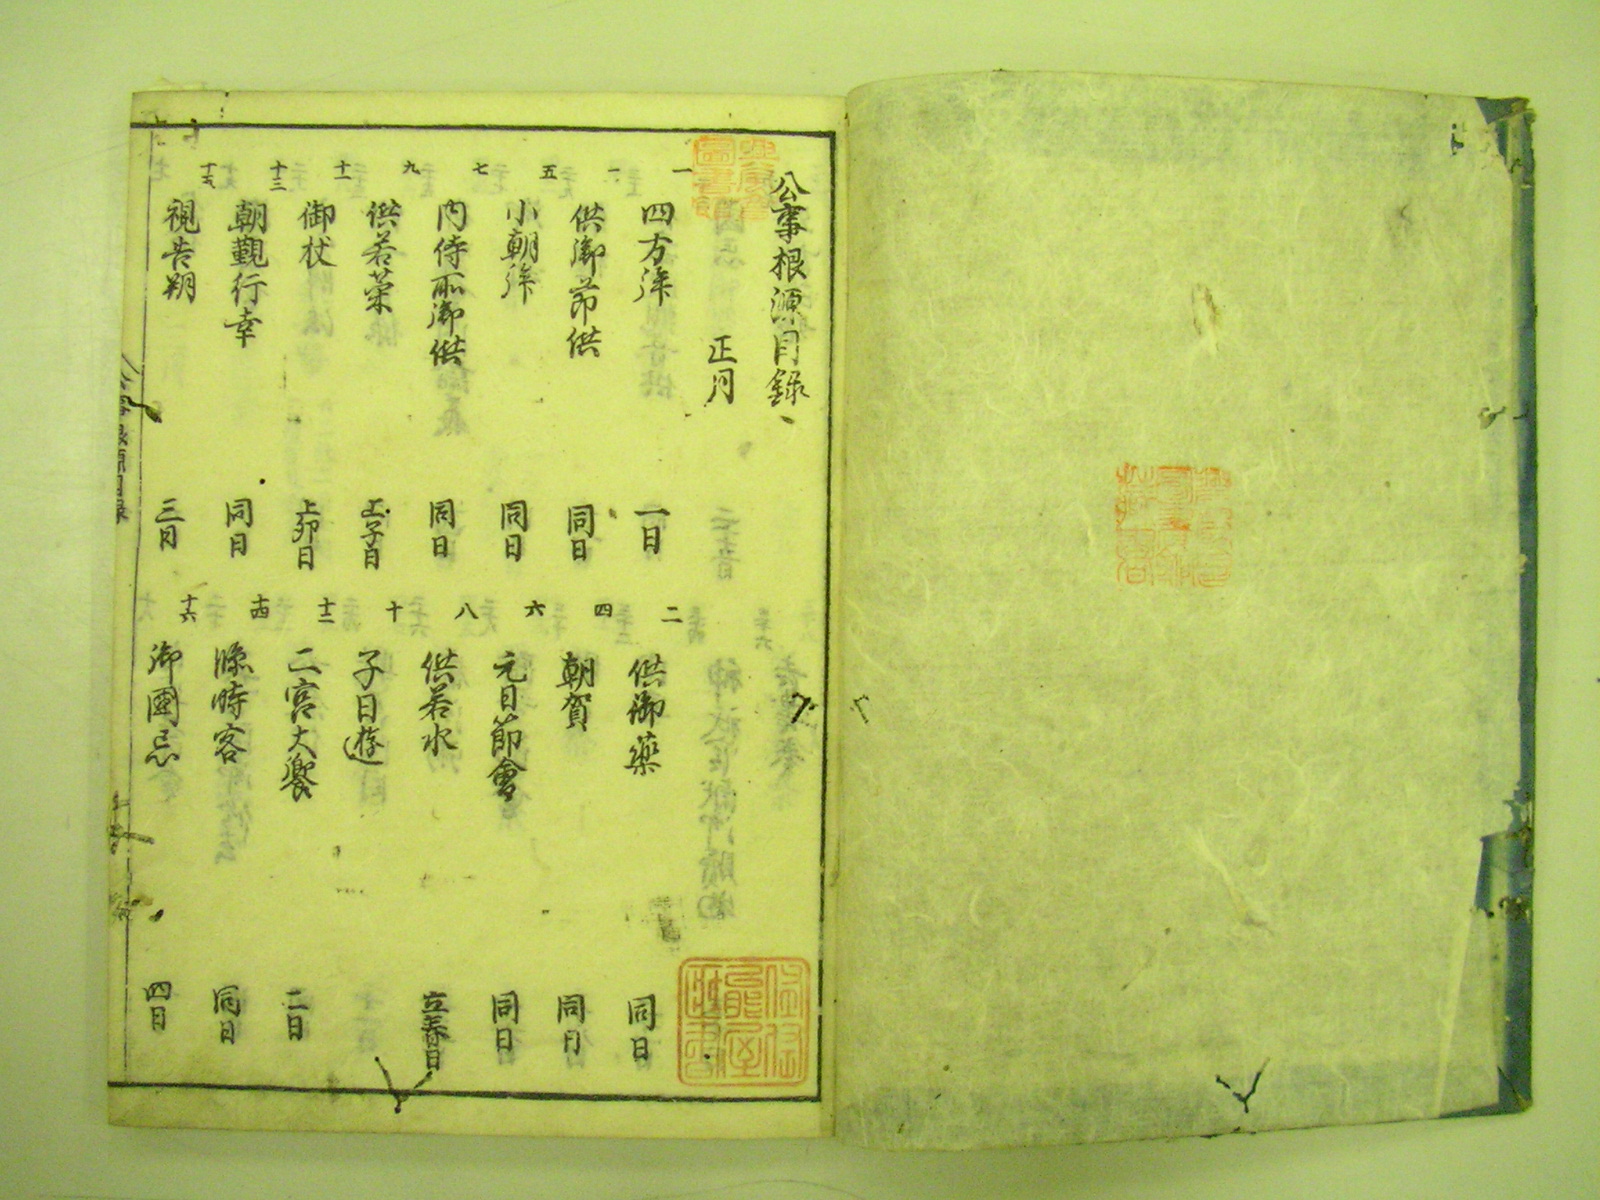 公事根源目録
正月
一 四方拜 一日
二 供御藥 同日
三 供御節供 同日
四 朝賀 同日
五 小朝拜 同日
六 元日節會 同日
七 内侍所御供 同日
八 供若水 立春日
九 供若菜 上子日
十 子日遊
十一 御杖 上卯日
十二 二宮大饗 二日
十三 朝覲行幸 同日
十四 臨時客 同日
十五 視告朔 三日
十六 御國忌 四日